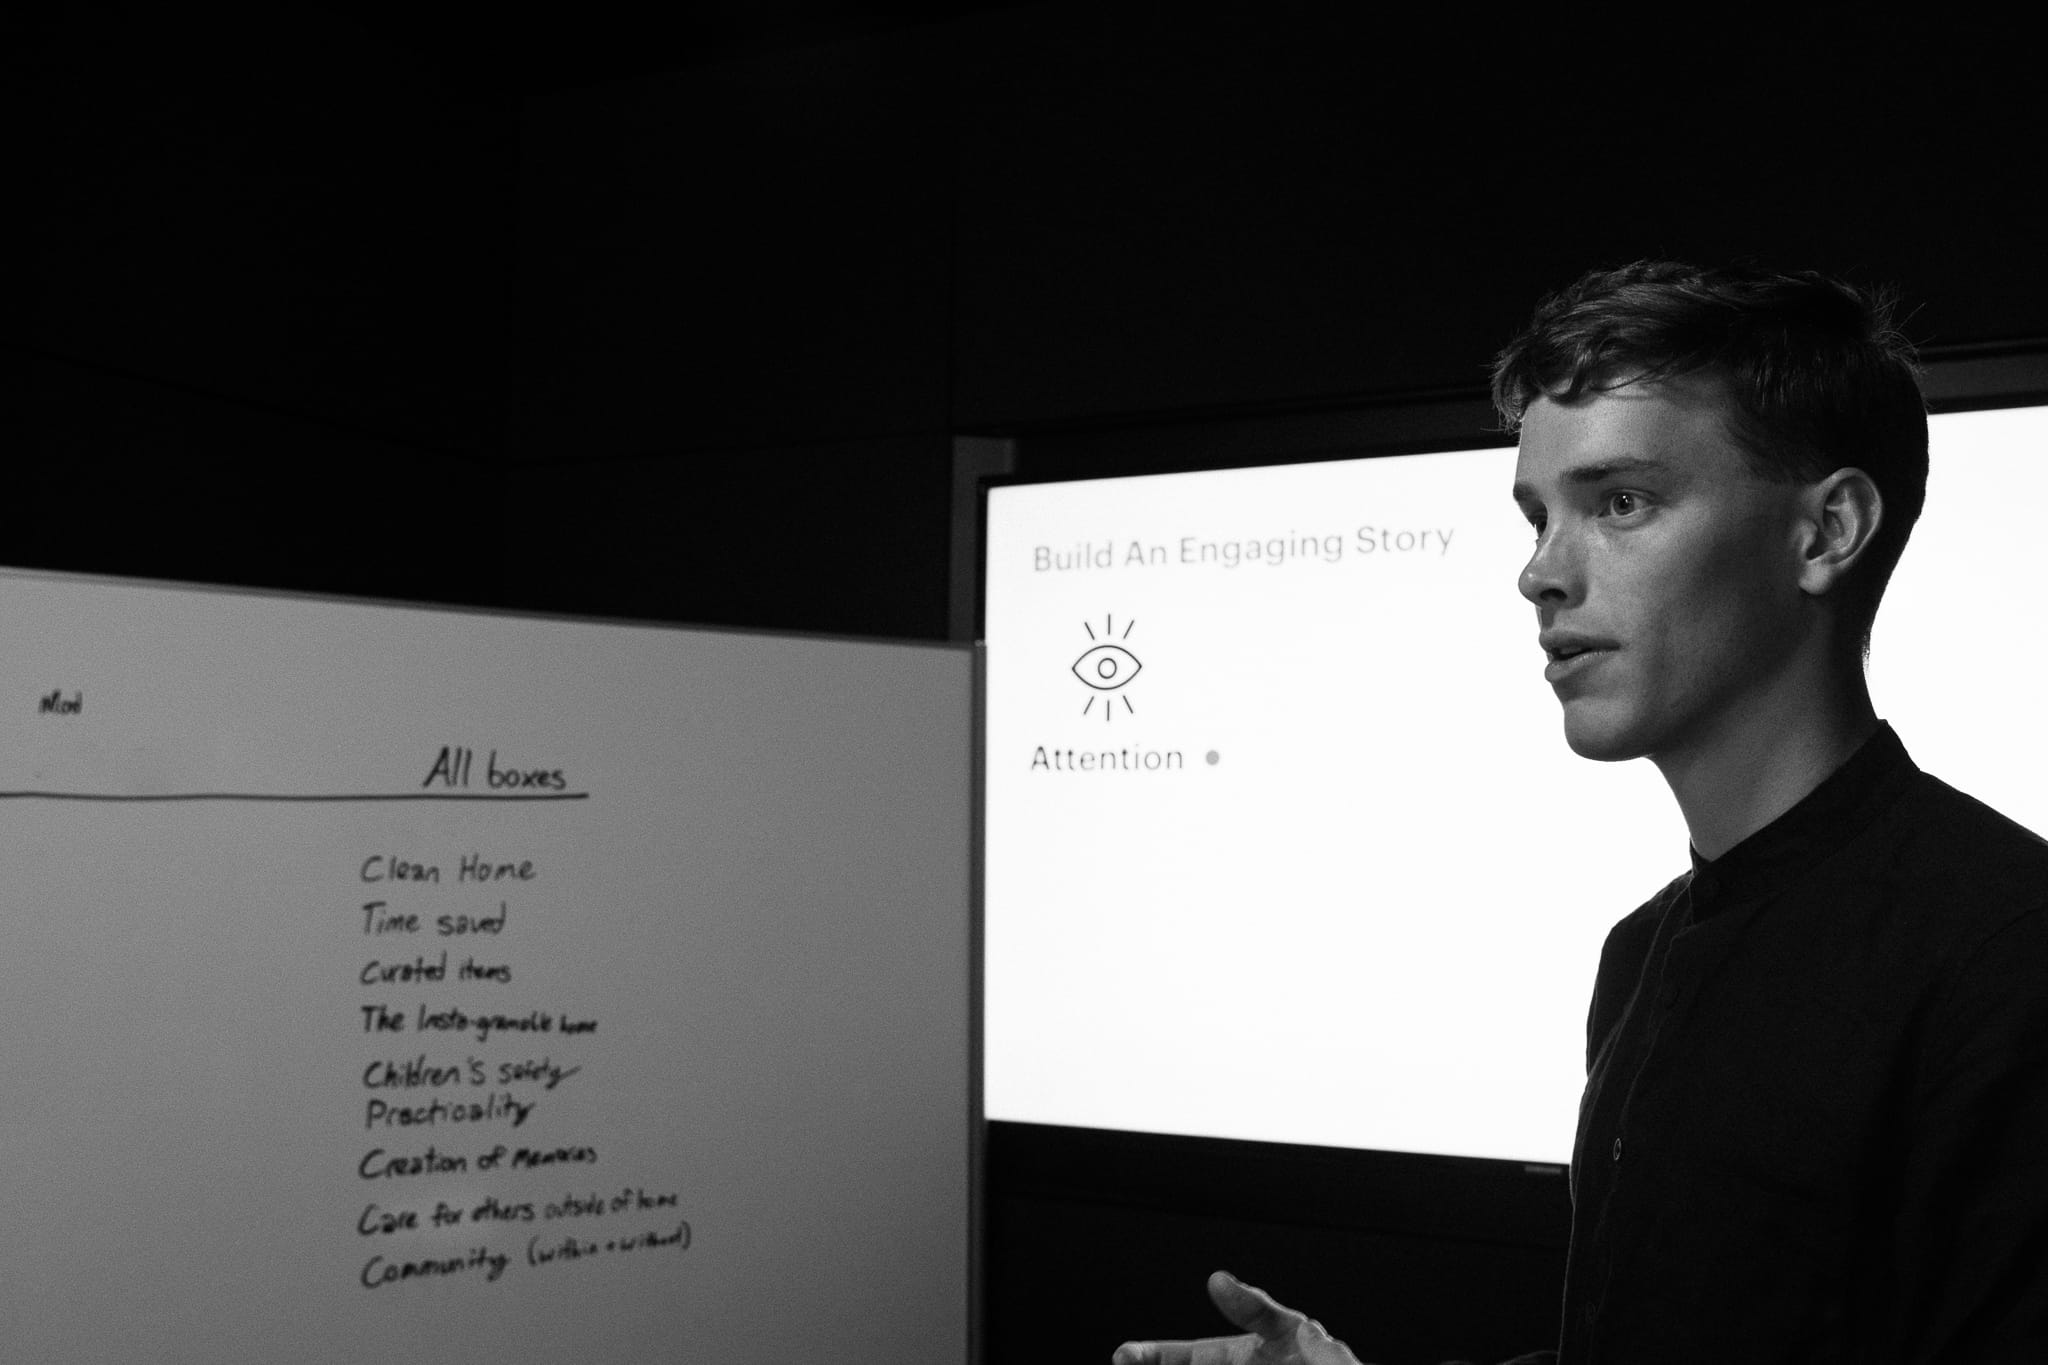 All boxes
Clean Home
Time saved
Curated items
The Insta-gramable home
Children's safety
Practicality
Creation of Memories
Care for others outside of home
Community (within + without)
Build An Engaging Story
Attention